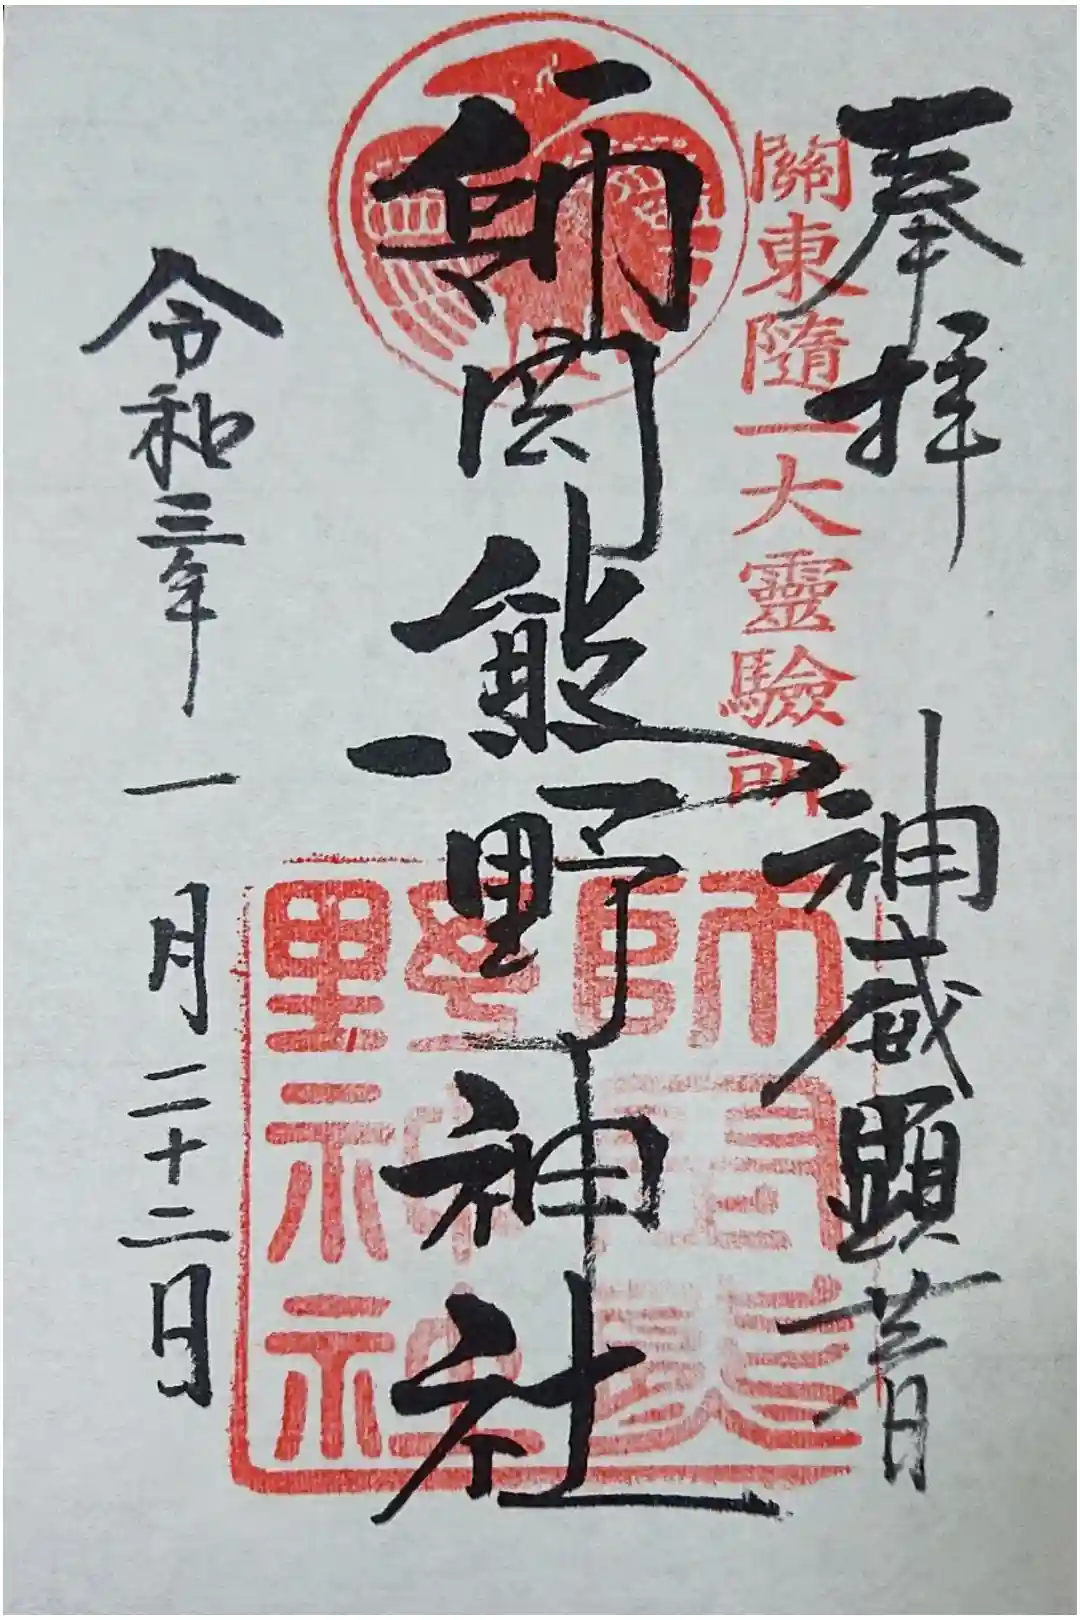 奉拝 神威顕著
關東隨一大靈驗所
師岡熊野神社
師岡熊
野神社
令和三年一月二十二日